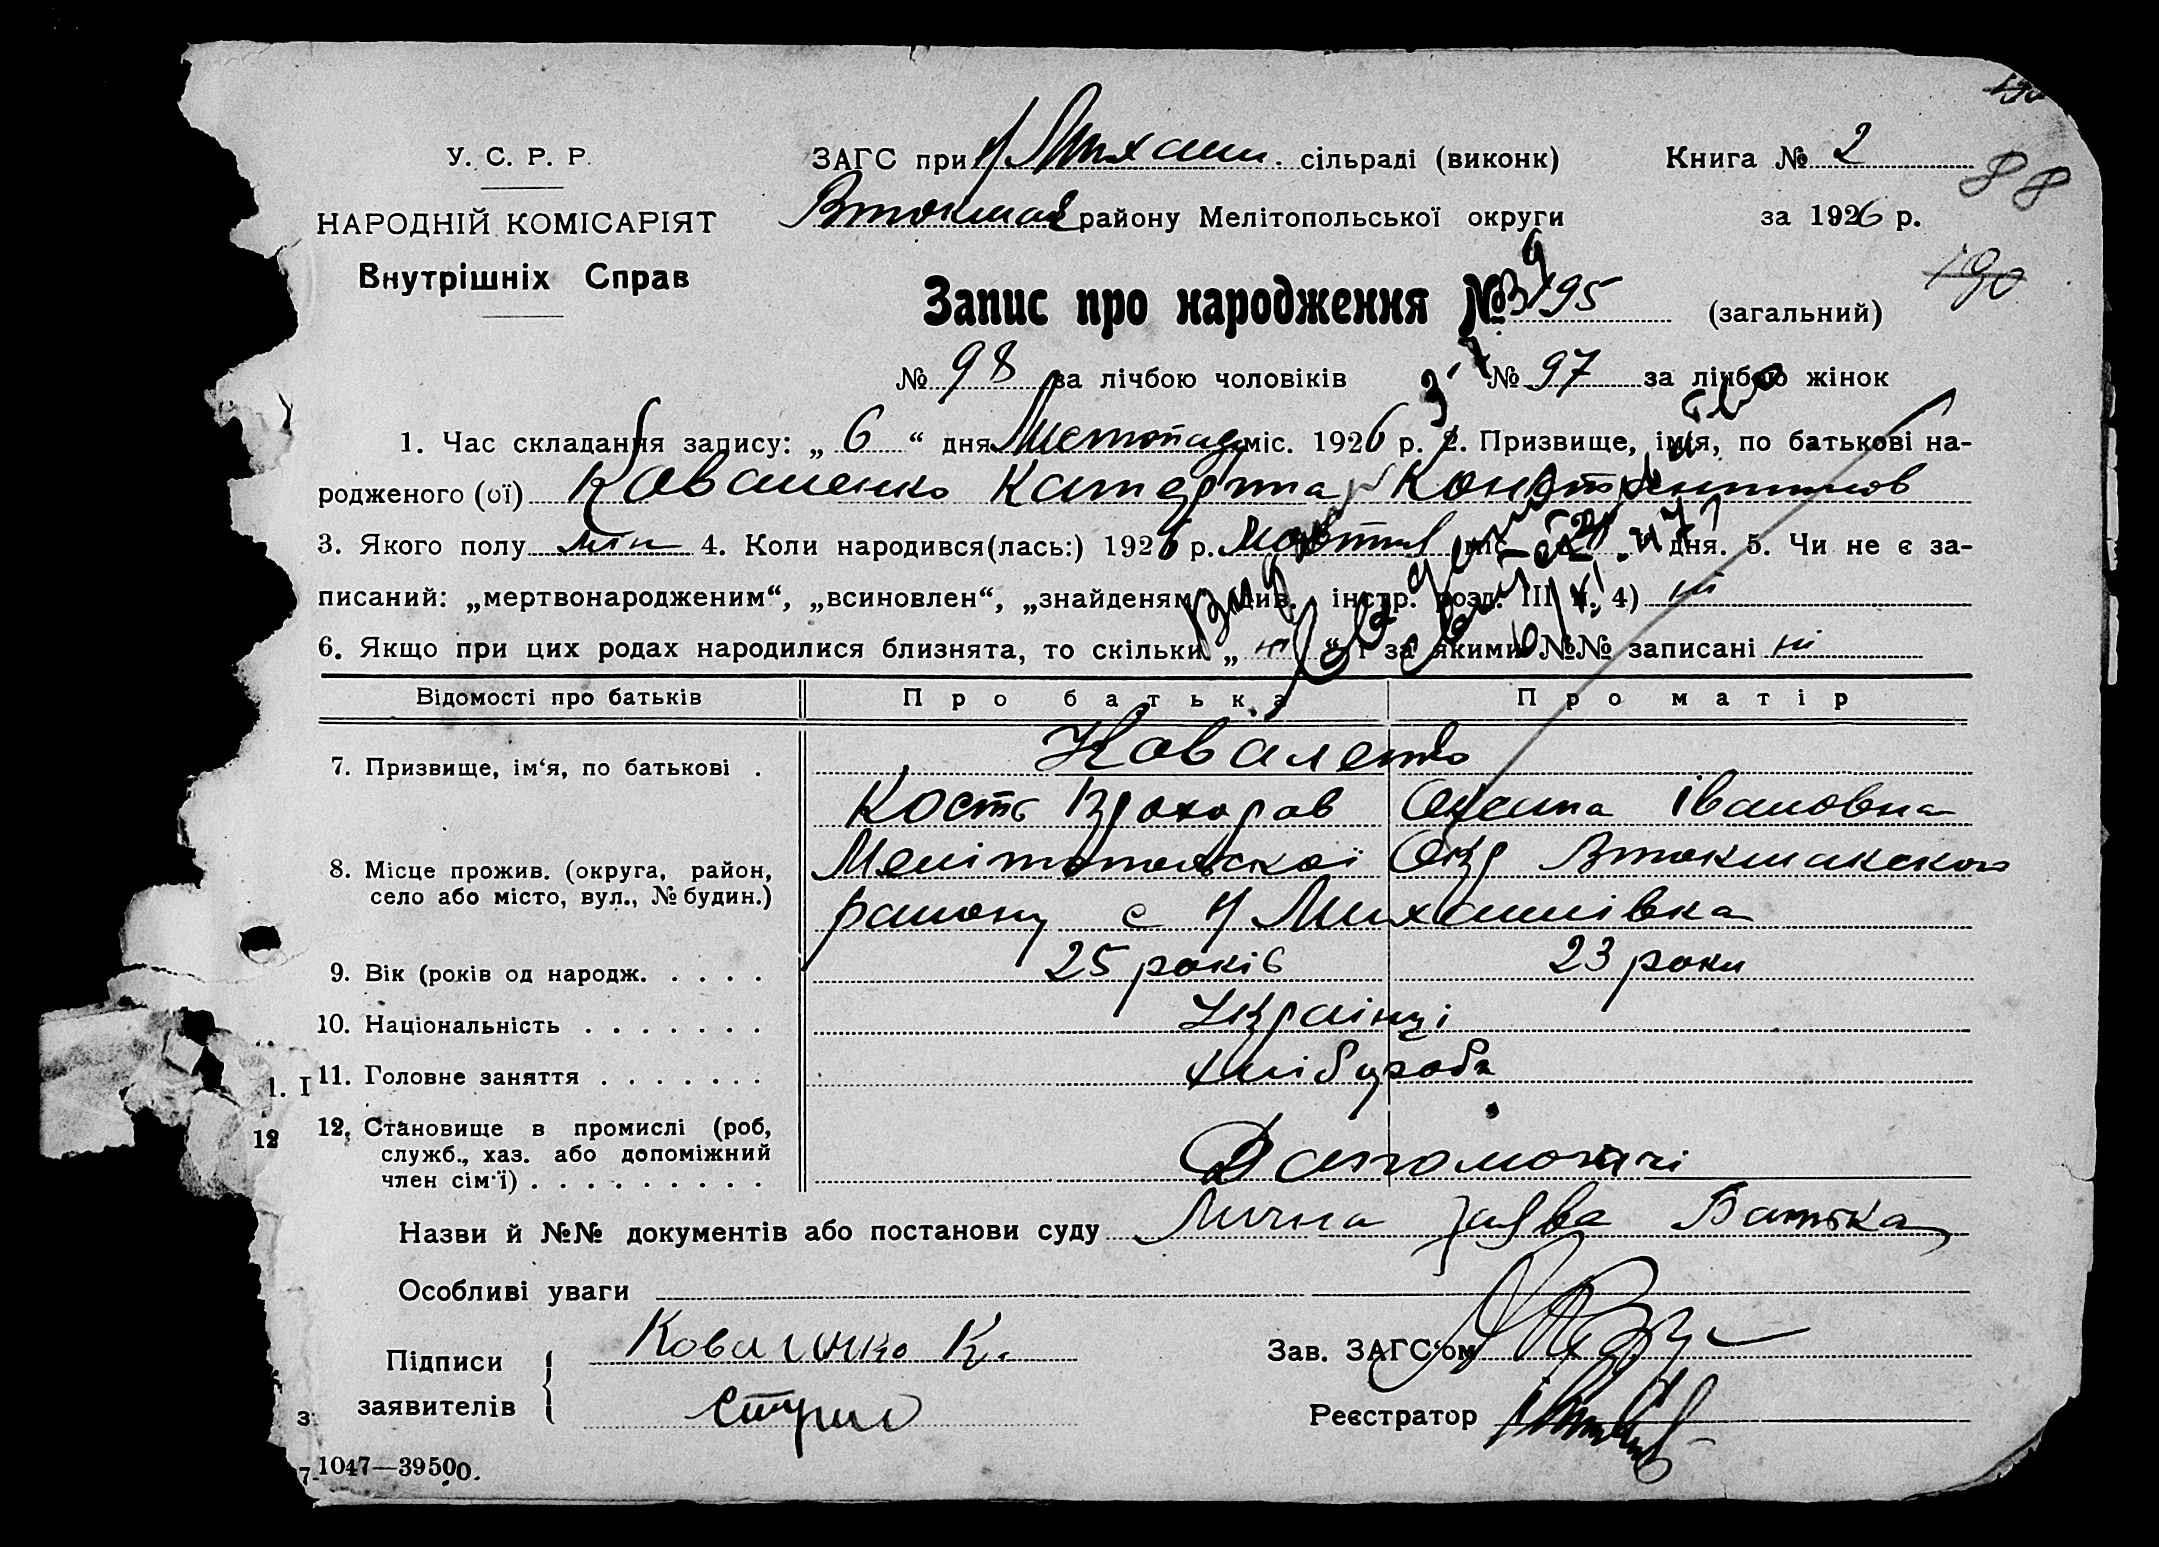 У. С. Р. Р.
НАРОДНІЙ КОМІСАРІЯТ
Внутрішніх Справ
ЗАГС при Ч Михайл. сільраді (виконк)
Втокмак району Мелітопольської округи
Книга № 2
за 1926 р.
88
190
Запис про народження № 195 (загальний)
№ 98 за лічбою чоловіків № 97 за лічбою жінок
1. Час складання запису: „ 6 “ дня Листопад міс. 1926 р. 2. Призвище, імія, по батькові на-
родженого (ої) Коваленко Катерина Константинов
3. Якого полу жін 4. Коли народився(лась:) 1926 р. Жовтня міс дня. 5. Чи не є за-
писаний: „мертвонародженим“, „всиновлен“, „знайденям“ (див. інстр. розд. III 4) ні
6. Якщо при цих родах народилися близнята, то скільки „ ні “ і за якими №№ записані ні
Відомості про батьків Про батька Про матір
7. Призвище, ім‘я, по батькові . Коваленко
Кость Прохоров Івановна
8. Місце прожив. (округа, район,
село або місто, вул., № будин.)
Мелітопольскої Окр Втокмакского
району с Ч Михайлівка
9. Вік (років од народж. . . . . 25 років 23 роки
10. Національність . . . . . . . Українці
11. Головне заняття . . . . . . . хлібороби
12. Становище в промислі (роб,
служб., хаз. або допоміжний
член сім'ї) . . . . . . . . .
Допомогачі
Назви й №№ документів або постанови суду Лична заява Батька
Особливі уваги
Підписи
заявителів
Коваленко К.
Зав. ЗАГС‘ом
Реєстратор
1047—39500.